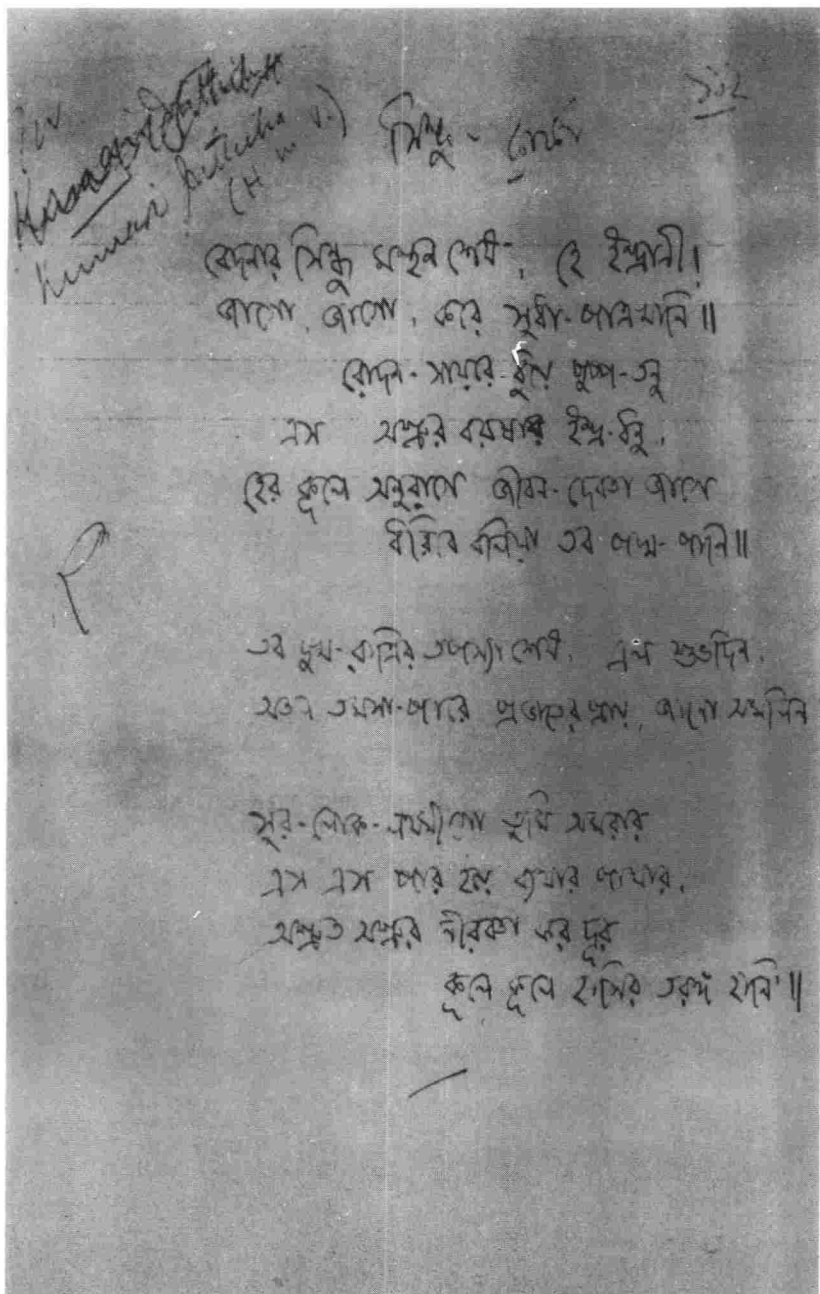 ১০২
সিন্ধু -
(H. M. V.)
বেদনার সিন্ধু মন্থন শেষ, হে ইন্দ্রানী!
জাগো, জাগো, করে সুধা-পাত্রখানি॥
রোদন-সায়রে ধুয়ে পুষ্প-তনু
এস অশ্রুর বরষার ইন্দ্র-ধনু,
হের কূলে অনুরাগে জীবন-দেবতা জাগে
ধরিবে বলিয়া তব পদ্ম-পানি॥
তব দুখ-রাত্রির তপস্যা শেষ, এল শুভদিন,
অতল তমসা-পারে প্রভাতের প্রায়, জাগো অমলিন
সুর-লোক-লক্ষ্মীগো তুমি অমরার
এস এস পার হয়ে ব্যথার পাথার,
অশ্রুত অশ্রুর নীরবতা কর দূর
কূলে কূলে হাসির তরঙ্গ হানি'॥